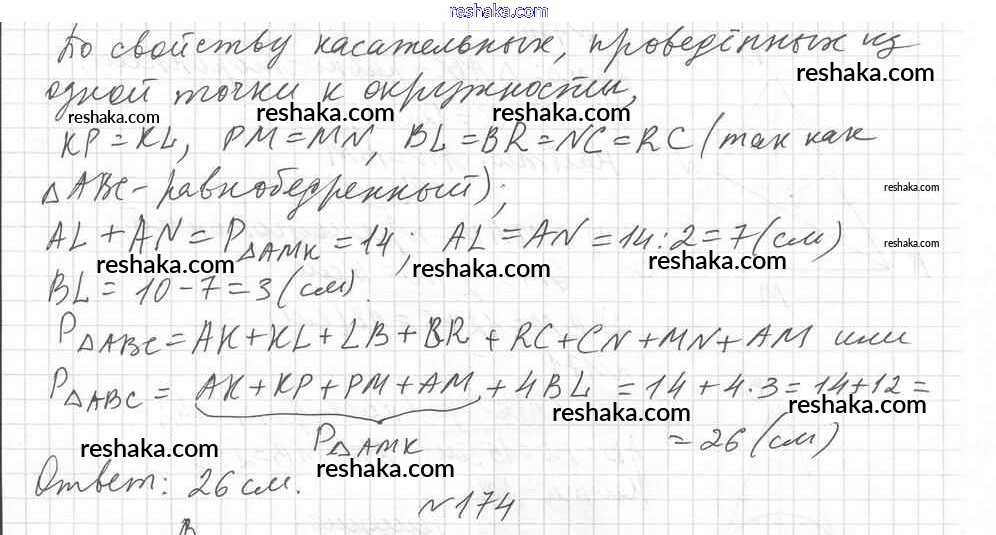 reshaka.com
По свойству касательных, проведённых из
reshaka.com
одной точки к окружности,
reshaka.com reshaka.com reshaka.com
KP = KL, PM = MN, BL = BR = NC = RC (так как
△ABC - равнобедренный);
reshaka.com
AL + AN = P△AMK = 14; AL = AN = 14 : 2 = 7 (см)
reshaka.com reshaka.com reshaka.com reshaka.com
BL = 10 - 7 = 3 (см).
P△ABC = AK + KL + LB + BR + RC + CN + MN + AM или
P△ABC = AK + KP + PM + AM + 4BL = 14 + 4 · 3 = 14 + 12 =
reshaka.com reshaka.com
P△AMK = 26 (см)
reshaka.com reshaka.com reshaka.com
Ответ: 26 см.
№174
B